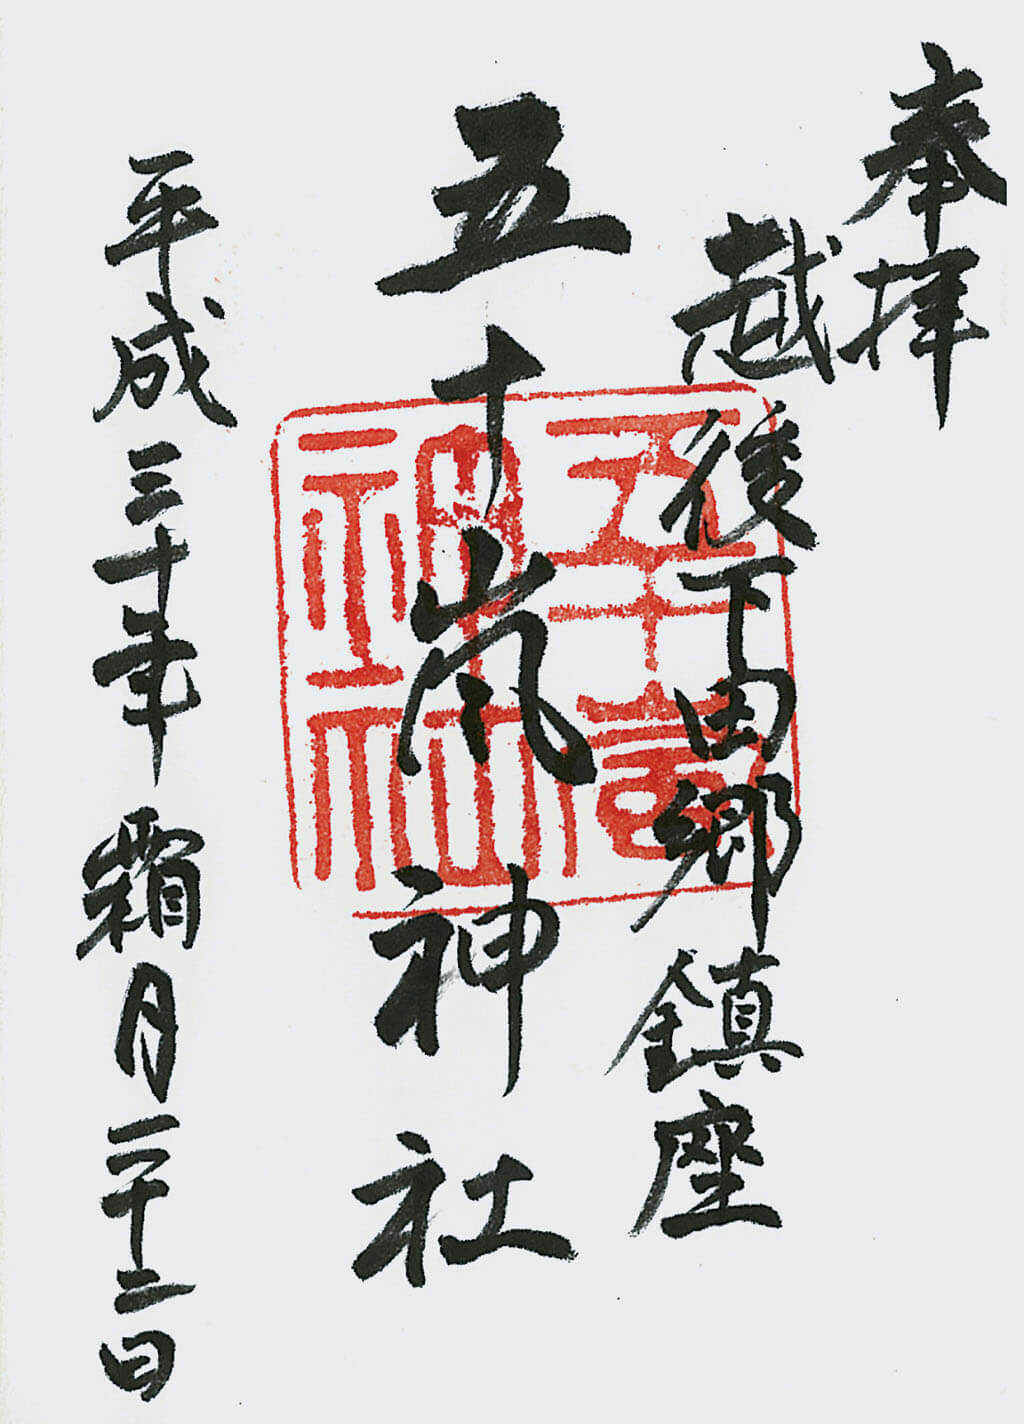 奉拝
越後下田郷鎮座
五十嵐神社
平成三十年霜月二十二日
五十嵐神社